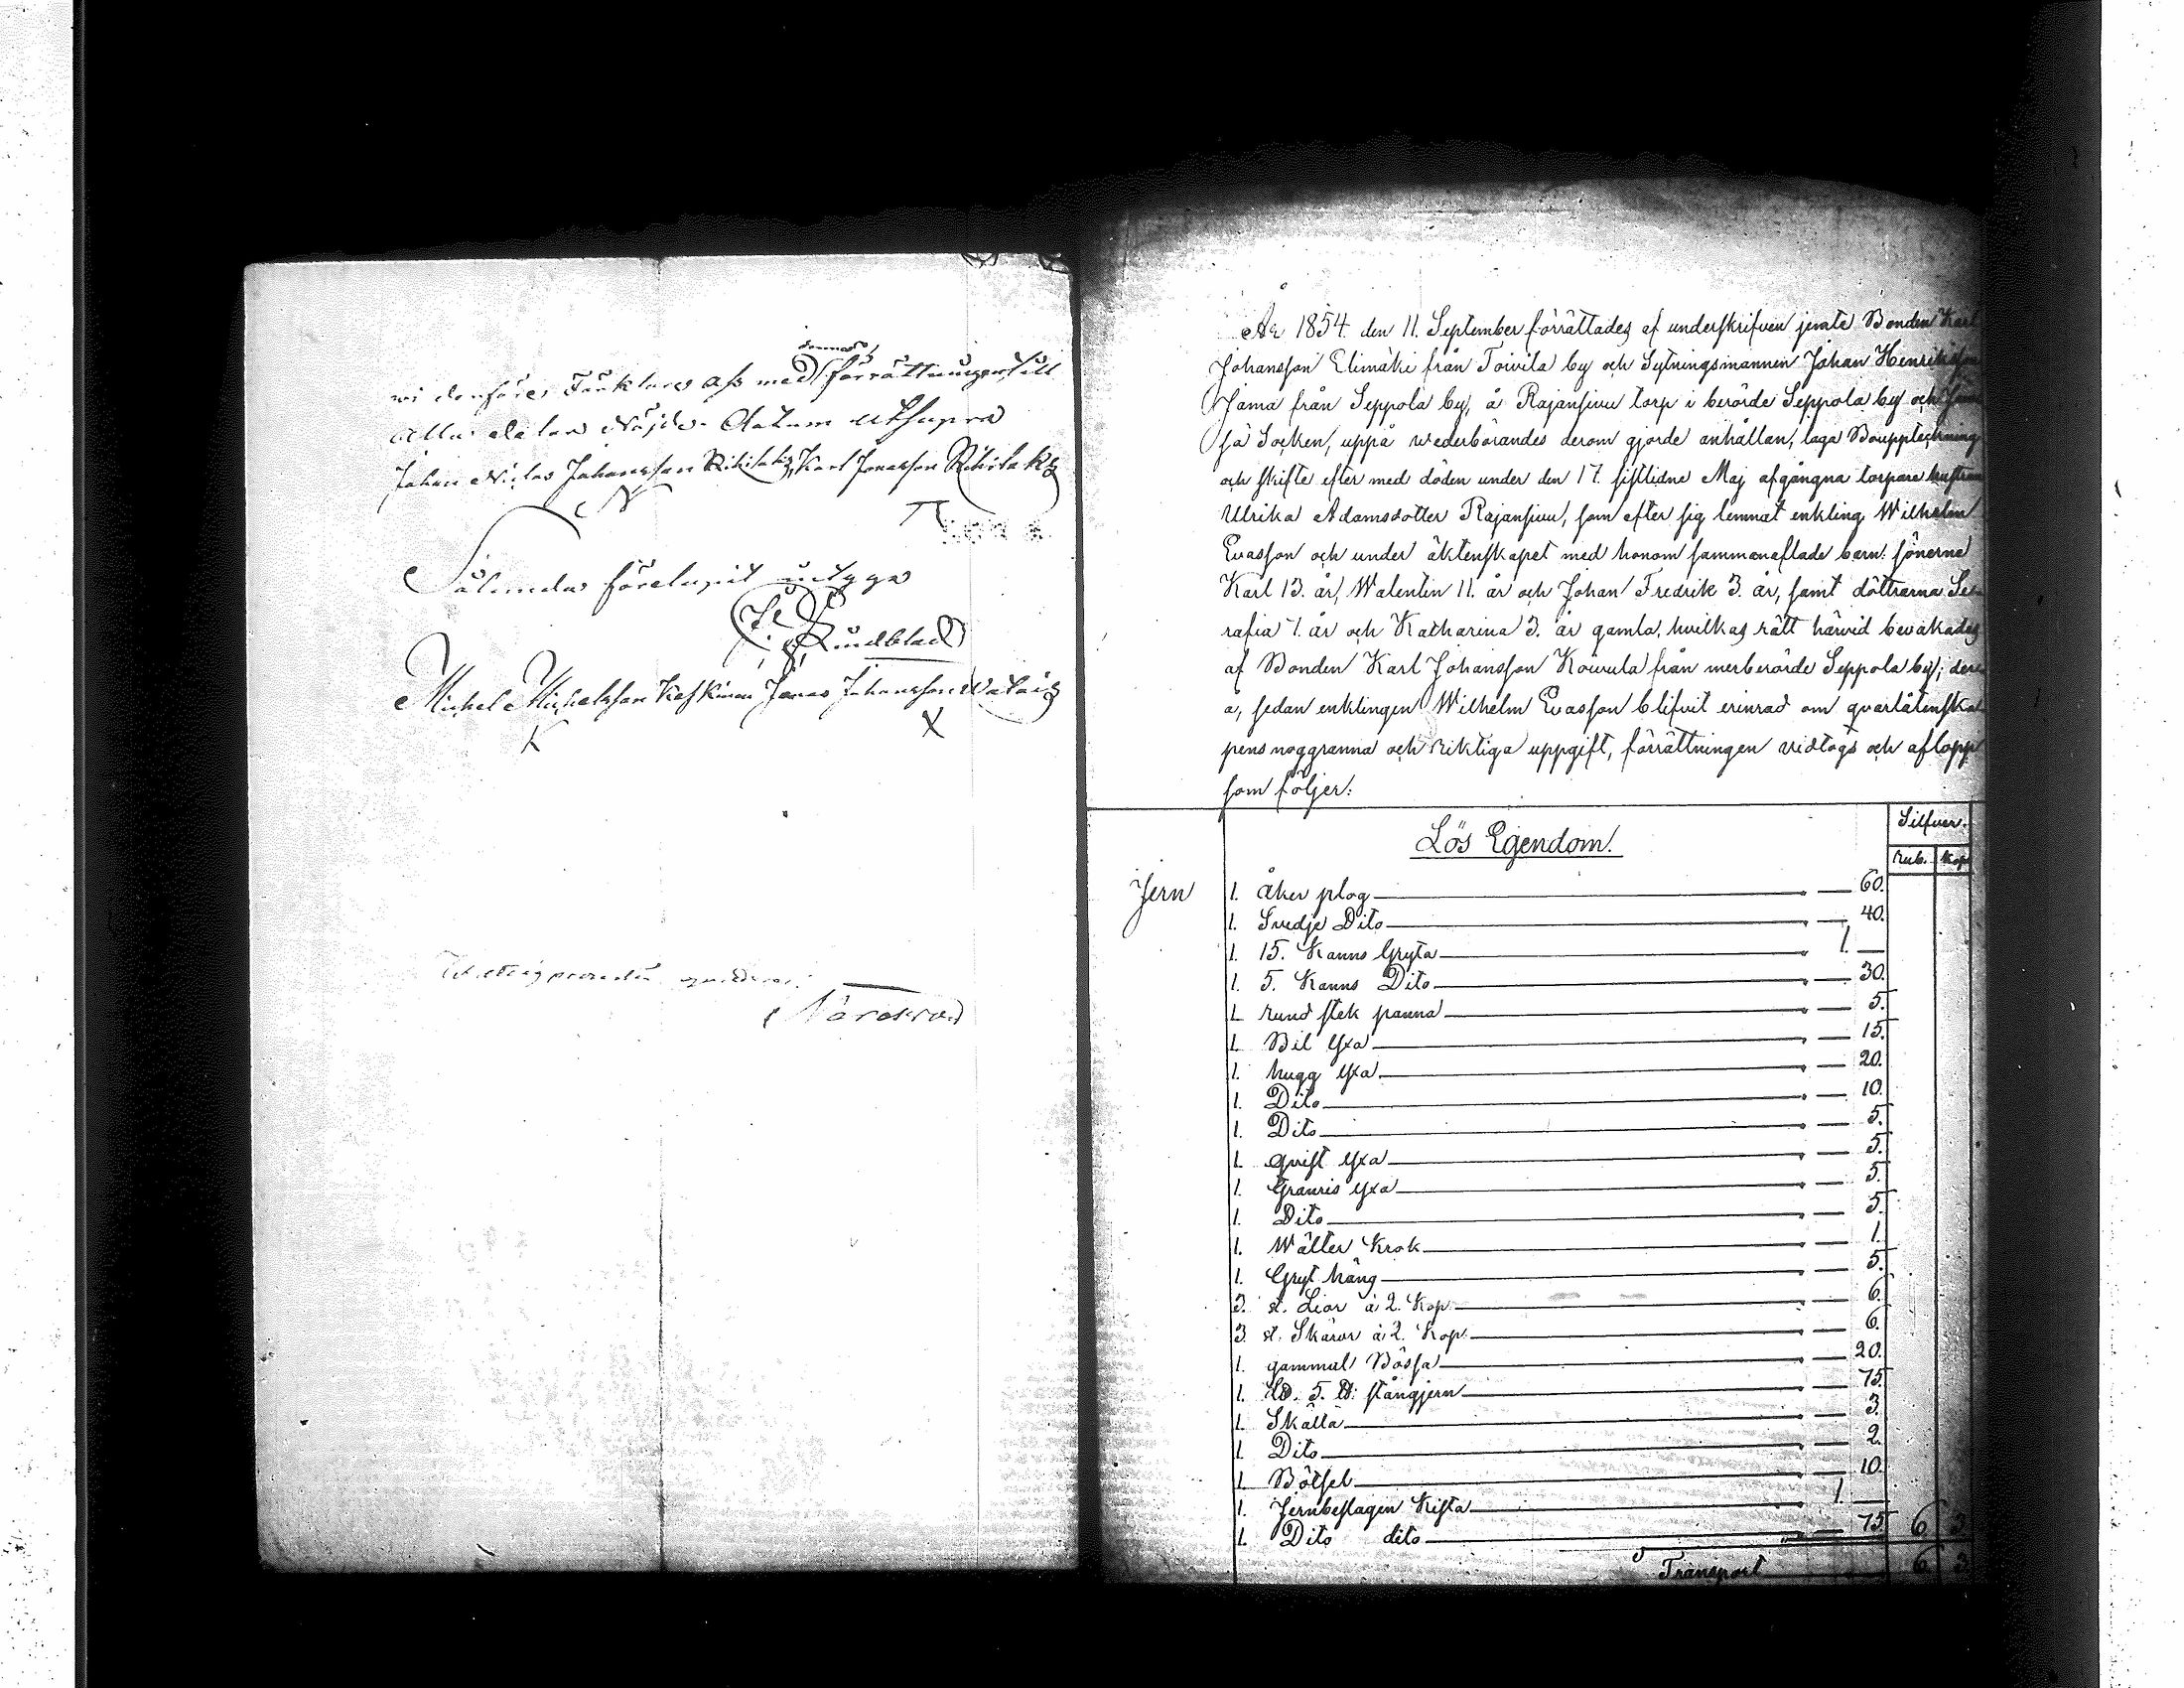 denna
wi derföre Tänktare att med förrättningen till
alla delar Nöjde. Datum utsupra
Johan Niclas Johansson Rikilakz Karl Jonasson Rikilakz
N
Sålunda förelupit intyga
Lundblad
Michel Michelsson Keskinen Jonas Johansson
K X
År 1854 den 11. September förrättades af underskrifven jemte Bonden Karl
Johansson Elimäki från Toivila by och Sytningsmannen Johan Henriksson
Jämä från Seppola by, å Rajansuu torp i berörde Seppola by och Jäm
sä Socken, uppå wederbörandes derom gjorde anhållan, laga Bouppteckning
och skifte efter med döden under den 17. sistlidne Maj afgångna torpare hustrun
Ulrika Adamsdotter Rajansuu, som efter sig lemnat enkling Wilhelm
Evasson och under äktenskapet med honom sammanaflade barn: sönerne
Karl 13. år, Walentin 11. år och Johan Fredrik 3. år, samt döttrarna Se-
rafia 7. år och Katharina 3. år gamla, hvilkas rätt härvid bevakades
af Bonden Karl Johansson Kouvula från merberörde Seppola by; der-
å, sedan enklingen Wilhelm Evasson blifvit erinrad om qvarlåtenska
pens noggranna och riktiga uppgift, förrättningen vidtogs och aflopp
som följer:
Lös Egendom. Silfver.
Rub. Kop
Jern 1. Åker plog 60.
1. Svedje Dito 40.
1. 15. Kanns Gryta 1. —
1. 5. Kanns Dito 30.
1. rund stek panna 5.
1. Bil yxa 15.
1. hugg yxa 20.
1. Dito 10.
1. Dito 5.
1. qvist yxa 5.
1. Granris yxa 5.
1. Dito 5.
1. Wälter Krok 1.
1. Gryt häng 5.
3. st. Liar à 2. Kop 6.
3. st. Skäror à 2. Kop. 6.
1. gammal Bössa 20.
1. L℔. 5. ℔: stångjern 75.
1. Skälla 3.
1. Dito 2.
1. Bötsel 10.
1. Jernbeslagen Kista 1. —
1. Dito dito 75. 6 3
Transport 6 3